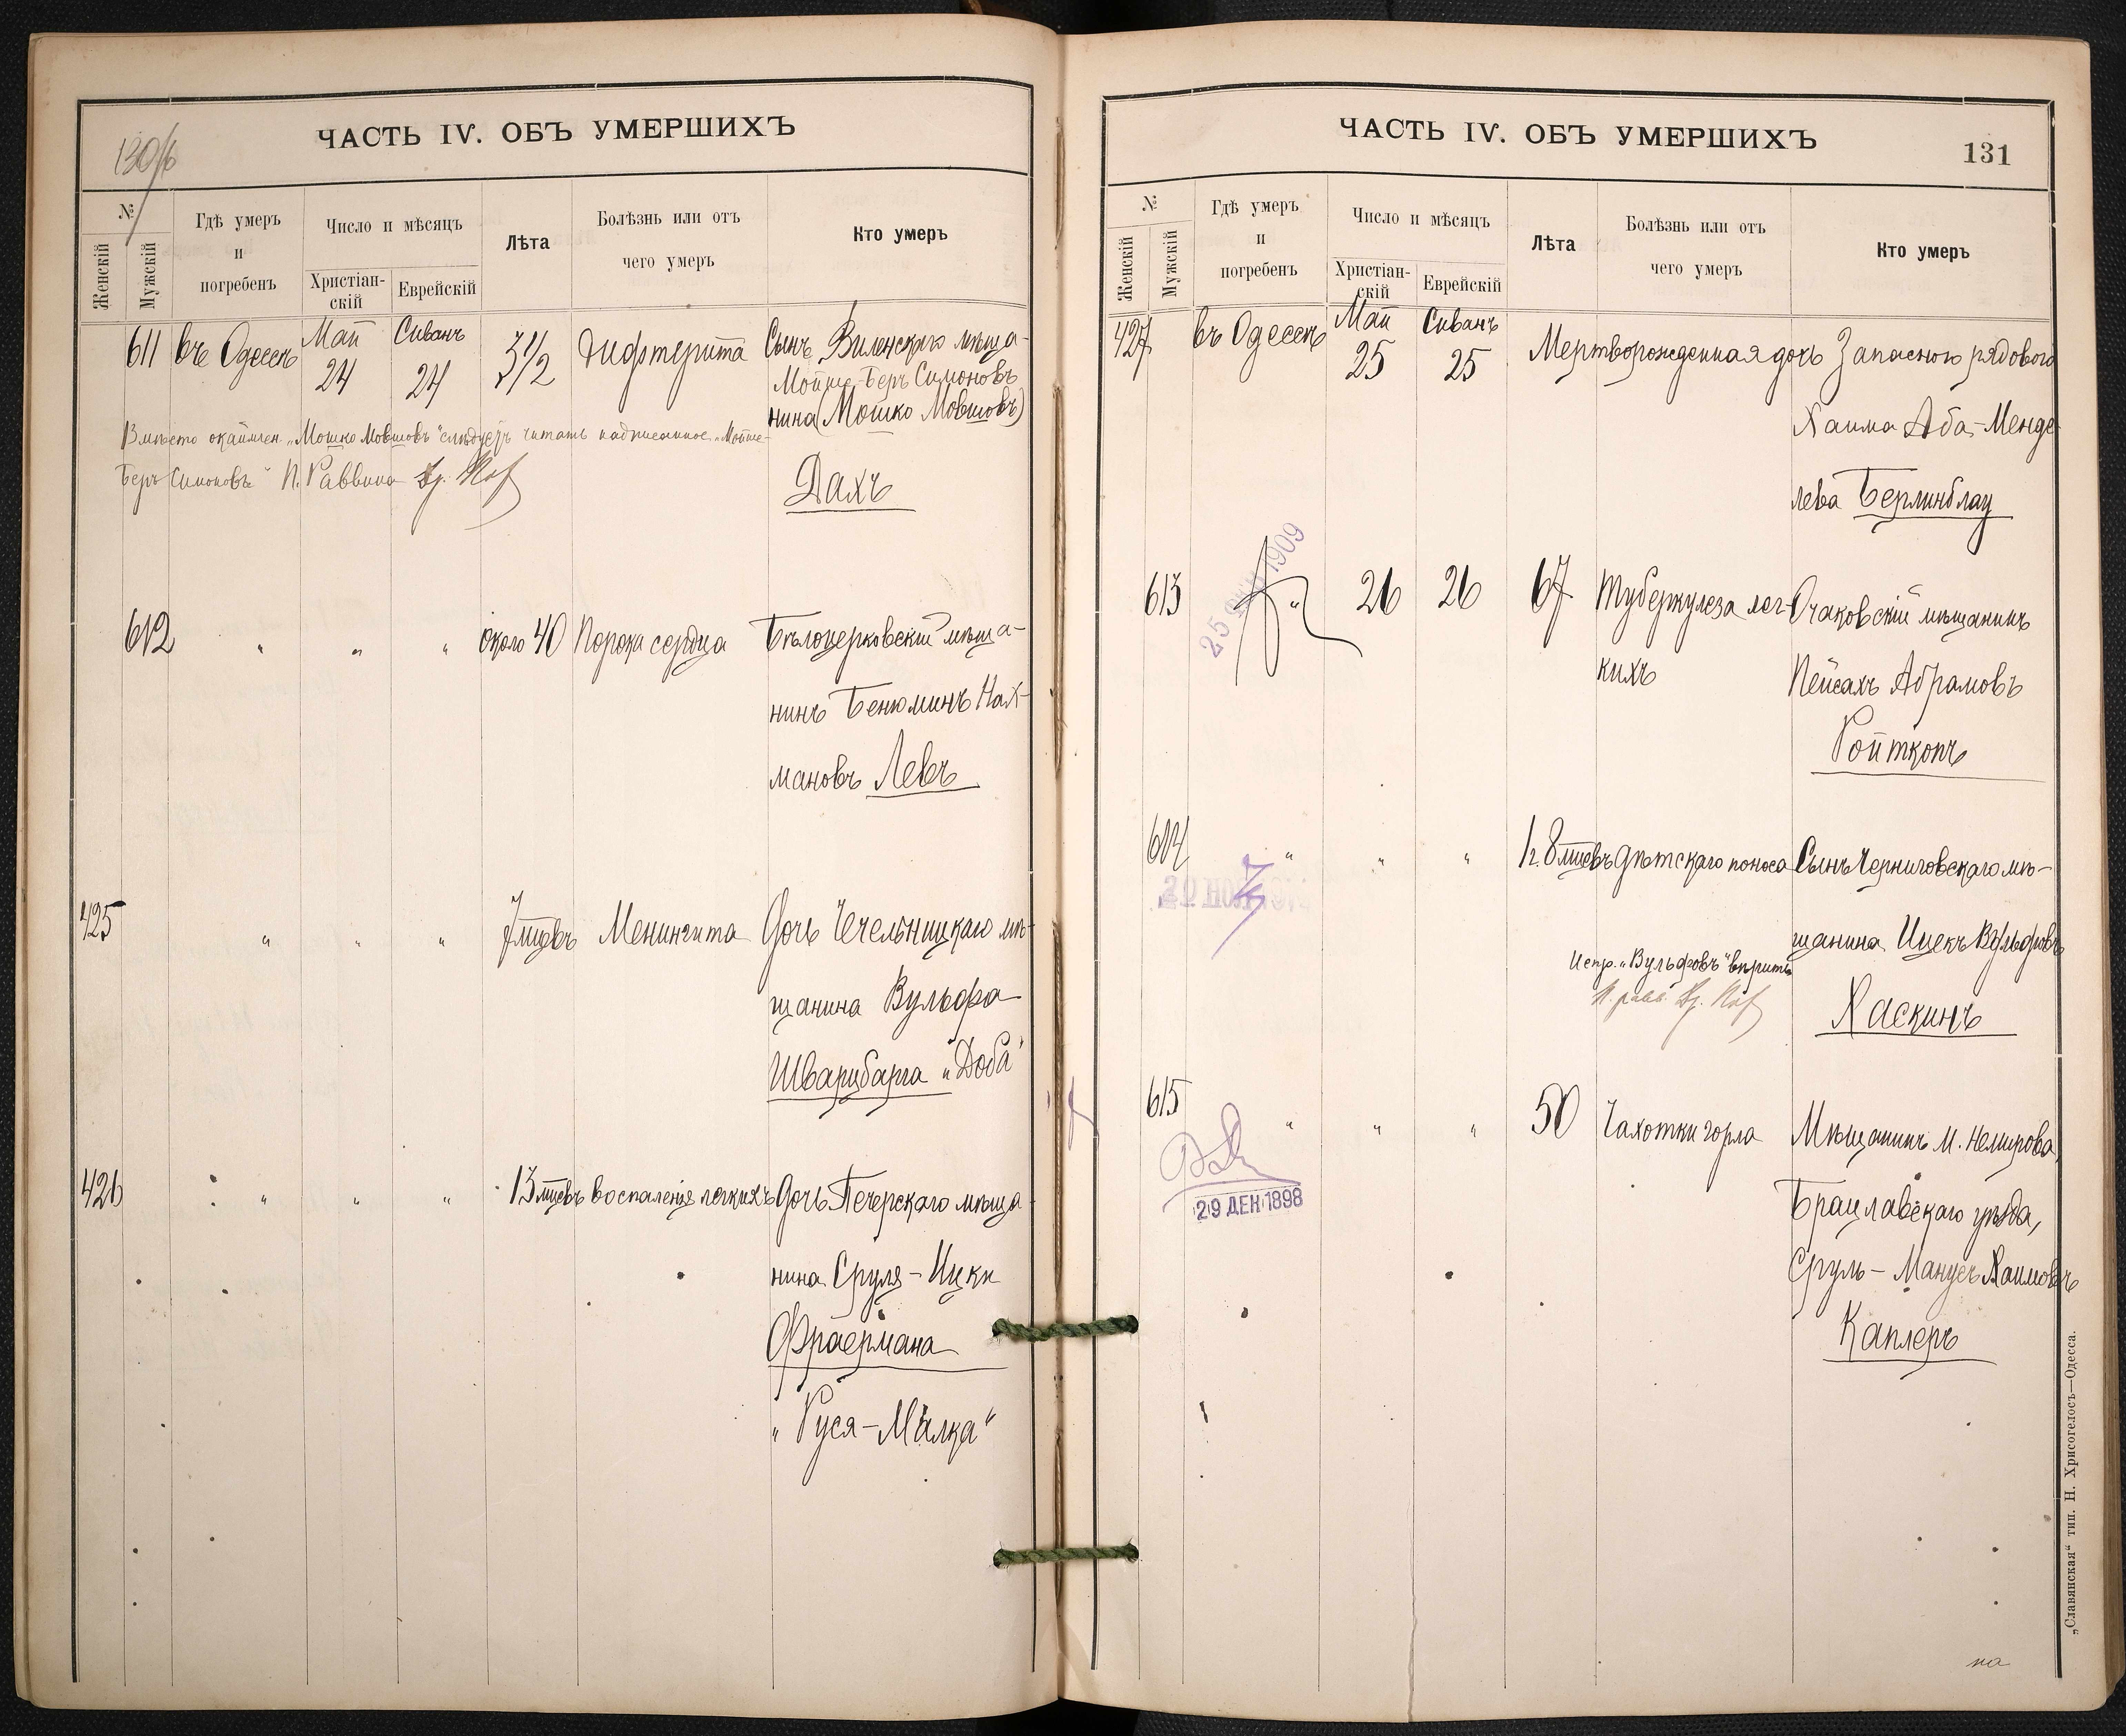 130/б
ЧАСТЬ IV. ОБЪ УМЕРШИХЪ
№
Женскій
Мужскій
Гдѣ умеръ
и
погребенъ
Число и мѣсяцъ
Христіан-
скій
Еврейскій
Лѣта
Болѣзнь или отъ
чего умеръ
Кто умеръ
611 въ Одессѣ Май Сиванъ 3½ Дифтерита Сынъ Виленскаго мѣща-
24 24 Мойше-Беръ Симоновъ
нина (Мошко Мовшовъ)
Вмѣсто окаймлен. „Мошко Мовшовъ" слѣдуетъ читать надписанное „Мойше-
Беръ Симоновъ" П. Раввина
Дахъ
612 " " " около 40 Порока сердца Бѣлоцерковскій мѣща-
нинъ Бенюминъ Нах-
мановъ Левъ
425 " " " 7 мцевъ Менингита Дочь Чечельницкаго мѣ-
щанина Вульфа
Шварцбарга „Доба"
426 " " " 13 мцевъ воспаленія легкихъ Дочь Печерскаго мѣща-
нина Сруля-Ицки
Фраермана
„Руся-Малка"
ЧАСТЬ IV. ОБЪ УМЕРШИХЪ
131
№
Женскій
Мужскій
Гдѣ умеръ
и
погребенъ
Число и мѣсяцъ
Христіан-
скій
Еврейскій
Лѣта
Болѣзнь или отъ
чего умеръ
Кто умеръ
427 въ Одессѣ Май Сиванъ Мертворожденная дочь Запасного рядового
25 25
Хаима Аба-Менде-
лева Берлинблау
613 " 26 26 67 Туберкулеза лег- Очаковскій мѣщанинъ
кихъ Пейсахъ Абрамовъ
Ройткопъ
25 1909
614 " " " 1 г. 8 мцевъ дѣтскаго поноса Сынъ Черниговскаго мѣ-
20 НОЯ
щанина Ицекъ Вульфовъ
Испр. „Вульфовъ" вѣрить
П. равв.
Хаскинъ
615 " " " 50 Чахотки горла Мѣщанинъ м. Немирова,
29 ДЕК 1898
Брацлавскаго уѣзда,
Сруль-Манусъ Хаимовъ
Каплеръ
на
„Славянская" тип. Н. Хрисогелосъ—Одесса.